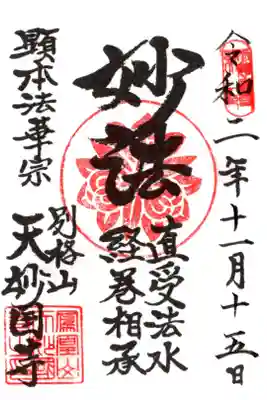 令和二年十一月十五日
妙法
直受法水
経巻相承
顕本法華宗
別格山
天妙国寺